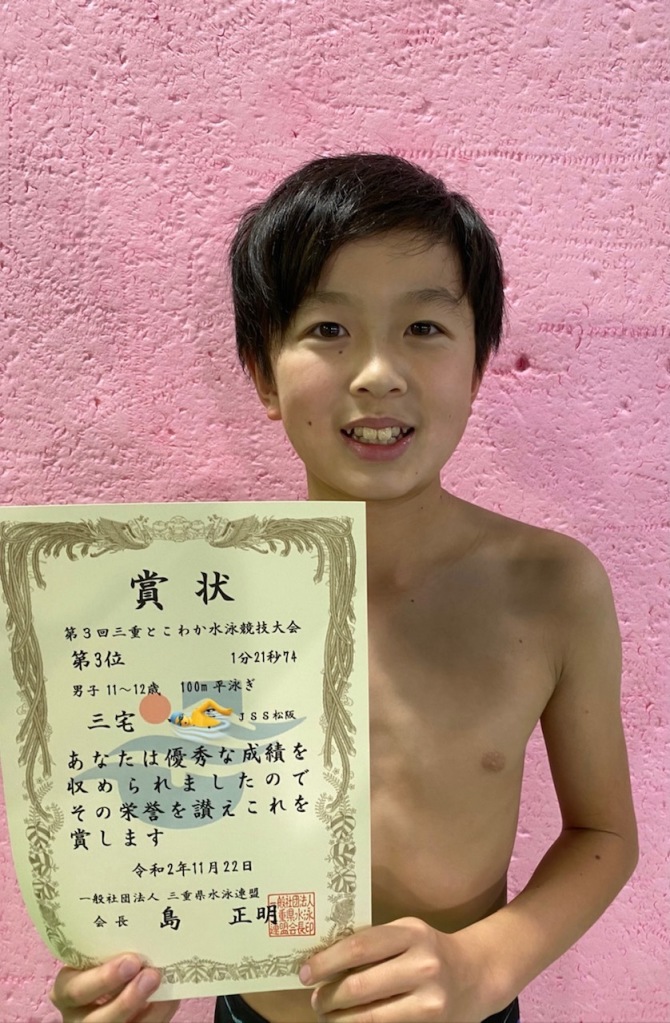 賞状
第3回三重とこわか水泳競技大会
第3位 1分21秒74
男子 11〜12歳 100m 平泳ぎ
三宅 JSS松阪
あなたは優秀な成績を
収められましたので
その栄誉を讃えこれを
賞します
令和2年11月22日
一般社団法人 三重県水泳連盟
会長 島 正明
一般社団法人
三重県水泳
連盟会長印